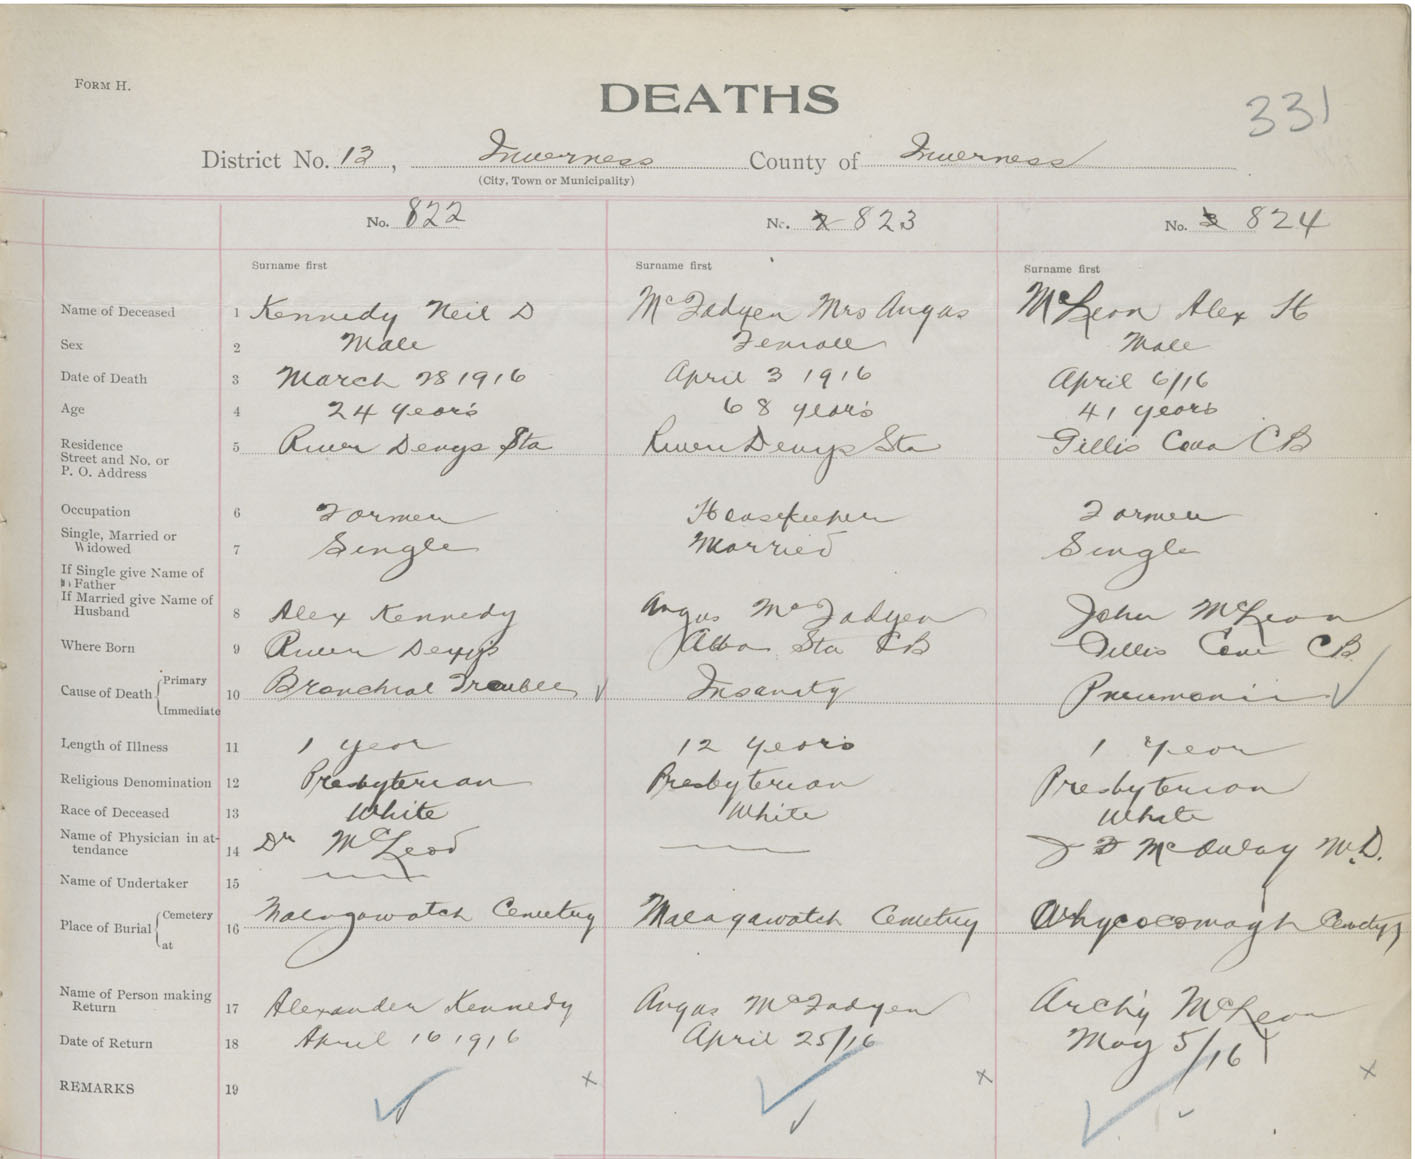 FORM H.
DEATHS
331
District No. 13, Inverness County of Inverness
(City, Town or Municipality)
No. 822 No. 2 823 No. 3 824
Surname first Surname first Surname first
Name of Deceased 1 Kennedy Neil D McFadyen Mrs Angus McLean Alex H
Sex 2 Male Female Male
Date of Death 3 March 28 1916 April 3 1916 April 6/16
Age 4 24 years 68 years 41 years
Residence
Street and No. or 5 River Denys Sta River Denys Sta Gillis Cove CB
P. O. Address
Occupation 6 Farmer Housekeeper Farmer
Single, Married or
Widowed 7 Single Married Single
If Single give Name of
Father
If Married give Name of
Husband 8 Alex Kennedy Angus McFadyen John McLean
Where Born 9 River Denys Alba Sta CB Gillis Cove CB
Cause of Death Primary 10 Bronchial Trouble Insanity Pneumonia
Immediate
Length of Illness 11 1 year 12 years 1 year
Religious Denomination 12 Presbyterian Presbyterian Presbyterian
Race of Deceased 13 White White White
Name of Physician in at-
tendance 14 Dr McLeod McAulay M.D.
Name of Undertaker 15
Place of Burial Cemetery 16 Malagawatch Cemetery Malagawatch Cemetery Whycocomagh Cemetery
at
Name of Person making
Return 17 Alexander Kennedy Angus McFadyen Archy McLean
Date of Return 18 April 16 1916 April 25/16 May 5/16
REMARKS 19 x x x